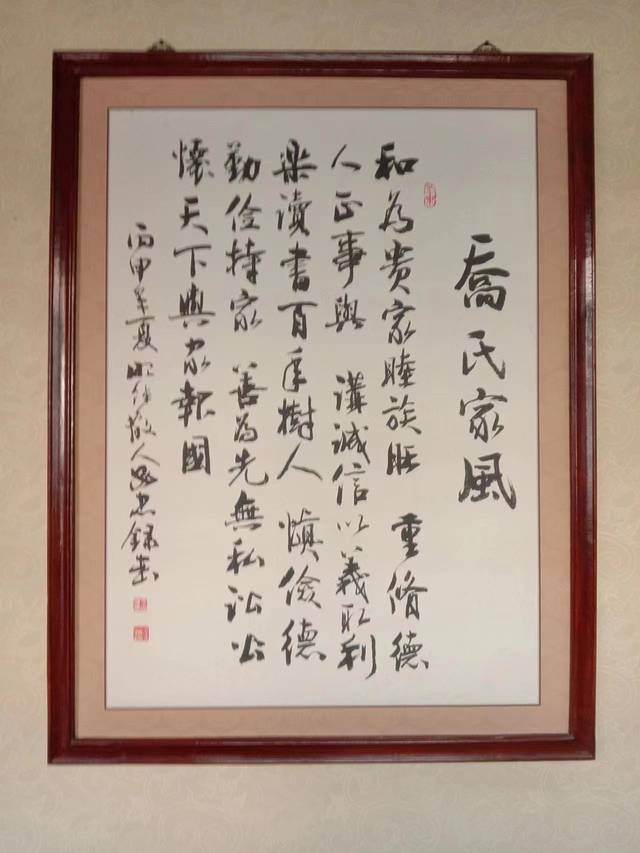 喬氏家風
和為贵家睦族旺 重脩德
人正事興 講誠信以義取利
樂讀書百年樹人 慎儉德
勤俭持家 善為先無私 公
懷天下興家報國
丙申年夏 人 忠錄書